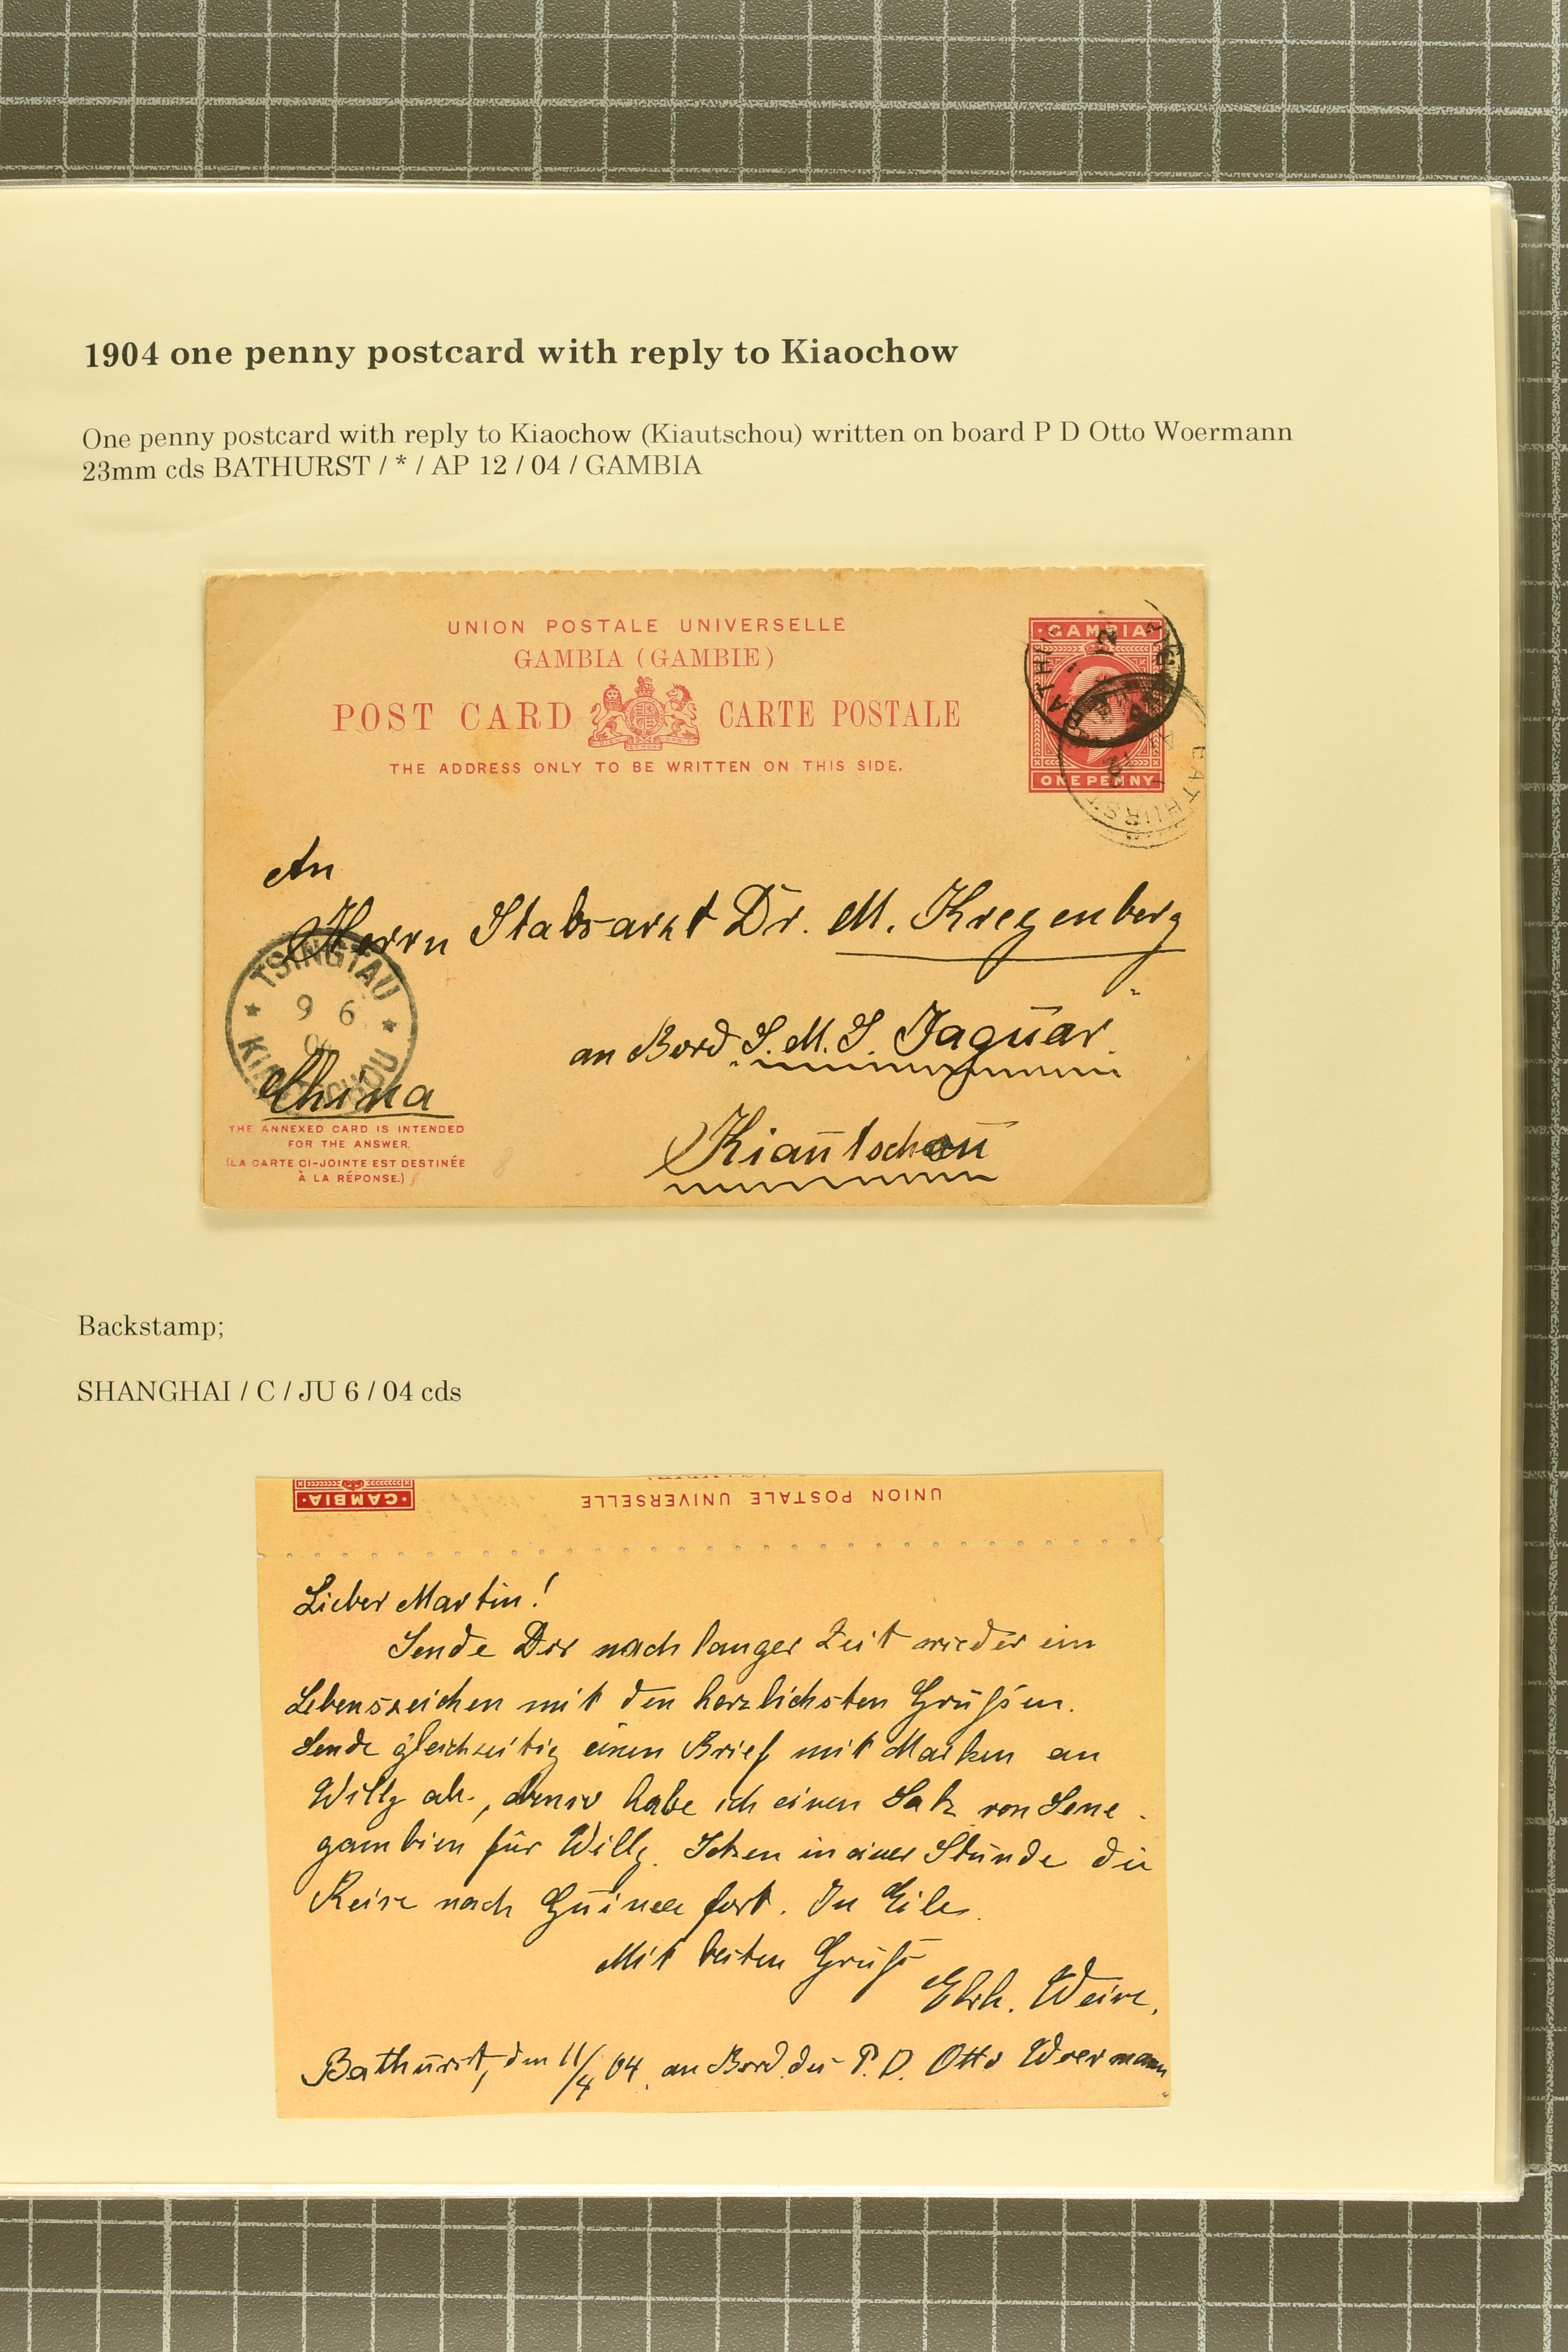 1904 one penny postcard with reply to Kiaochow
One penny postcard with reply to Kiaochow (Kiautschou) written on board P D Otto Woermann
23mm cds BATHURST / * / AP 12 / 04 / GAMBIA
UNION POSTALE UNIVERSELLE
GAMBIA (GAMBIE)
POST CARD CARTE POSTALE
THE ADDRESS ONLY TO BE WRITTEN ON THIS SIDE.
GAMBIA
ONE PENNY
BATHURST
An
Herrn Stabsarzt Dr. M. Kregenberg
an Bord S. M. S. Jaguar.
Kiautschou
China
TSINGTAU
9 6
KIAUTSCHOU
THE ANNEXED CARD IS INTENDED
FOR THE ANSWER.
(LA CARTE CI-JOINTE EST DESTINÉE
À LA RÉPONSE.)
Backstamp;
SHANGHAI / C / JU 6 / 04 cds
GAMBIA
UNION POSTALE UNIVERSELLE
Lieber Martin!
Sende Dir nach langer Zeit wieder ein
Lebenszeichen mit den herzlichsten Grüßen.
Sende gleichzeitig einen Brief mit Marken an
Willy ab, ebenso habe ich einen Satz von Sene-
gambien für Willy. Setzen in einer Stunde die
Reise nach Guinea fort. In Eile.
Mit besten Gruß
Weise.
Bathurst, den 11/4 04. an Bord des P. D. Otto Woermann